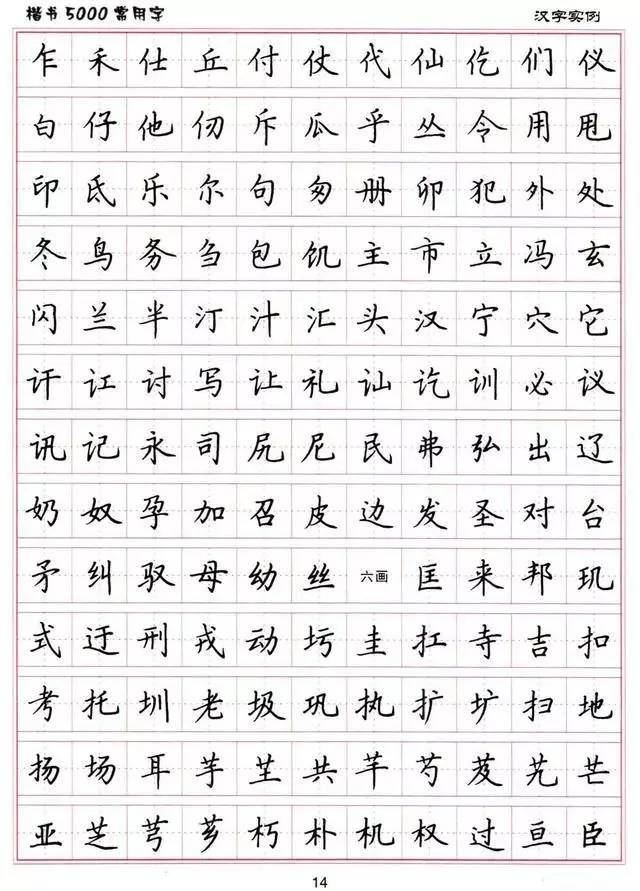 楷书5000常用字 汉字实例
乍 禾 仕 丘 付 仗 代 仙 仡 们 仪
白 仔 他 仞 斥 瓜 乎 丛 令 用 甩
印 氐 乐 尔 句 匆 册 卯 犯 外 处
冬 鸟 务 刍 包 饥 主 市 立 冯 玄
闪 兰 半 汀 汁 汇 头 汉 宁 穴 它
讦 讧 讨 写 让 礼 讪 讫 训 必 议
讯 记 永 司 尻 尼 民 弗 弘 出 辽
奶 奴 孕 加 召 皮 边 发 圣 对 台
矛 纠 驭 母 幼 丝 六画 匡 来 邦 玑
式 迂 刑 戎 动 圬 圭 扛 寺 吉 扣
考 托 圳 老 圾 巩 执 扩 圹 扫 地
扬 场 耳 芋 芏 共 芊 芍 芨 芄 芒
亚 芝 芎 芗 朽 朴 机 权 过 亘 臣
14